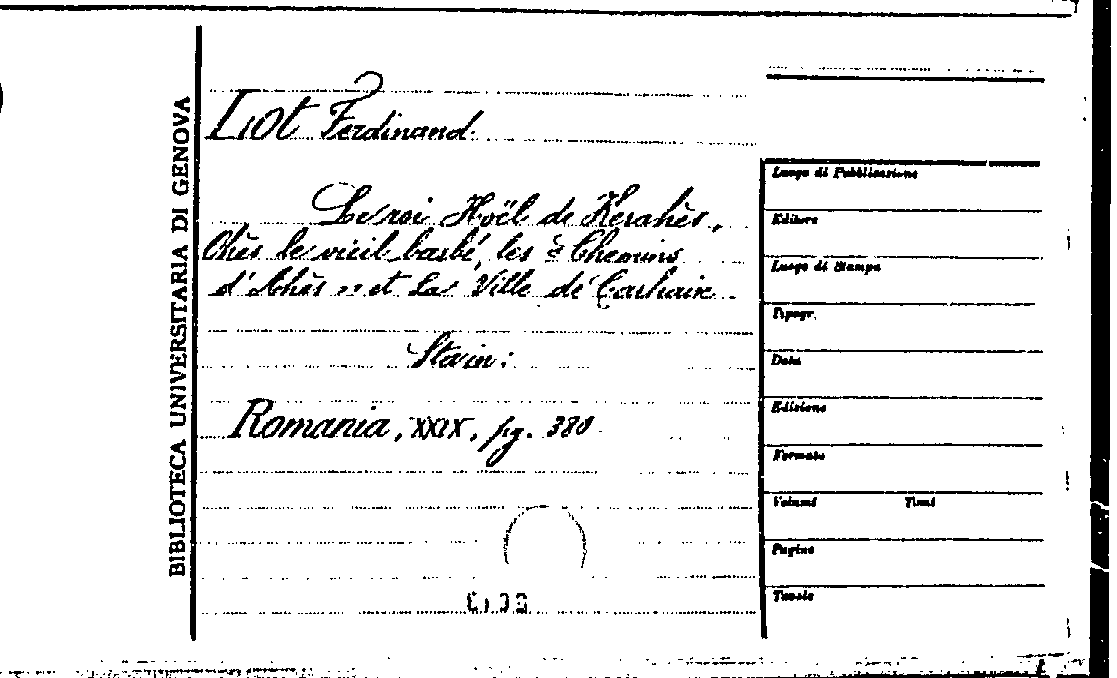 BIBLIOTECA UNIVERSITARIA DI GENOVA
Lot Ferdinand.
Le roi Hoël de Kerahès,
Ohès le vieil barbé, les « Chemins
d'Ahès » et La Ville de Carhaix.
Sta in:
Romania, XXIX, pg. 380
Luogo di Pubblicazione
Editore
Luogo di Stampa
Tipogr.
Data
Edizione
Formato
Volumi Tomi
Pagine
Tavole